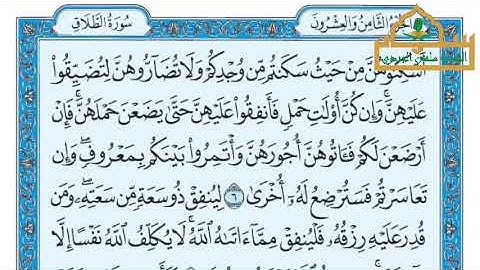 سُورَةُ الطَّلَاقِ
الجُزْءُ الثَّامِنُ وَالعِشْرُونَ
أَسْكِنُوهُنَّ مِنْ حَيْثُ سَكَنتُم مِّن وُجْدِكُمْ وَلَا تُضَآرُّوهُنَّ لِتُضَيِّقُوا۟
عَلَيْهِنَّ ۚ وَإِن كُنَّ أُو۟لَٰتِ حَمْلٍ فَأَنفِقُوا۟ عَلَيْهِنَّ حَتَّىٰ يَضَعْنَ حَمْلَهُنَّ ۚ فَإِنْ
أَرْضَعْنَ لَكُمْ فَـَٔاتُوهُنَّ أُجُورَهُنَّ وَأْتَمِرُوا۟ بَيْنَكُم بِمَعْرُوفٍ ۖ وَإِن
تَعَاسَرْتُمْ فَسَتُرْضِعُ لَهُۥٓ أُخْرَىٰ ٦ لِيُنفِقْ ذُو سَعَةٍ مِّن سَعَتِهِۦ ۖ وَمَن
قُدِرَ عَلَيْهِ رِزْقُهُۥ فَلْيُنفِقْ مِمَّآ ءَاتَىٰهُ ٱللَّهُ ۚ لَا يُكَلِّفُ ٱللَّهُ نَفْسًا إِلَّا